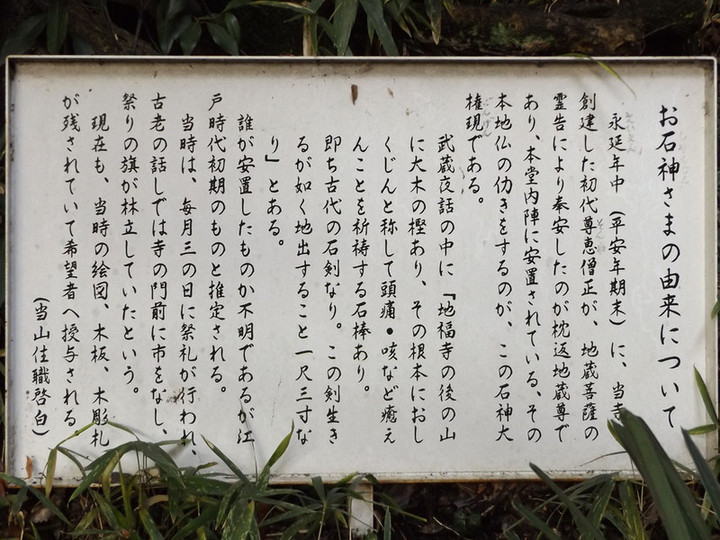 お石神さまの由来について
永延年中（平安年期末）に、当寺
創建した初代尊恵僧正が、地蔵菩薩の
霊告により奉安したのが枕返地蔵尊で
あり、本堂内陣に安置されている、その
本地仏の仂きをするのが、この石神大
権現である。
武蔵夜話の中に「地福寺の後の山
に大木の樫あり、その根本におし
くじんと称して頭痛・咳など癒え
んことを祈祷する石棒あり。
即ち古代の石剣なり。この剣生き
るが如く地出すること一尺三寸な
り」とある。
誰が安置したものか不明であるが江
戸時代初期のものと推定される。
当時は、毎月三の日に祭礼が行われ、
古老の話しでは寺の門前に市をなし、
祭りの旗が林立していたという。
現在も、当時の絵図、木板、木彫札
が残されていて希望者へ授与される
（当山住職啓白）